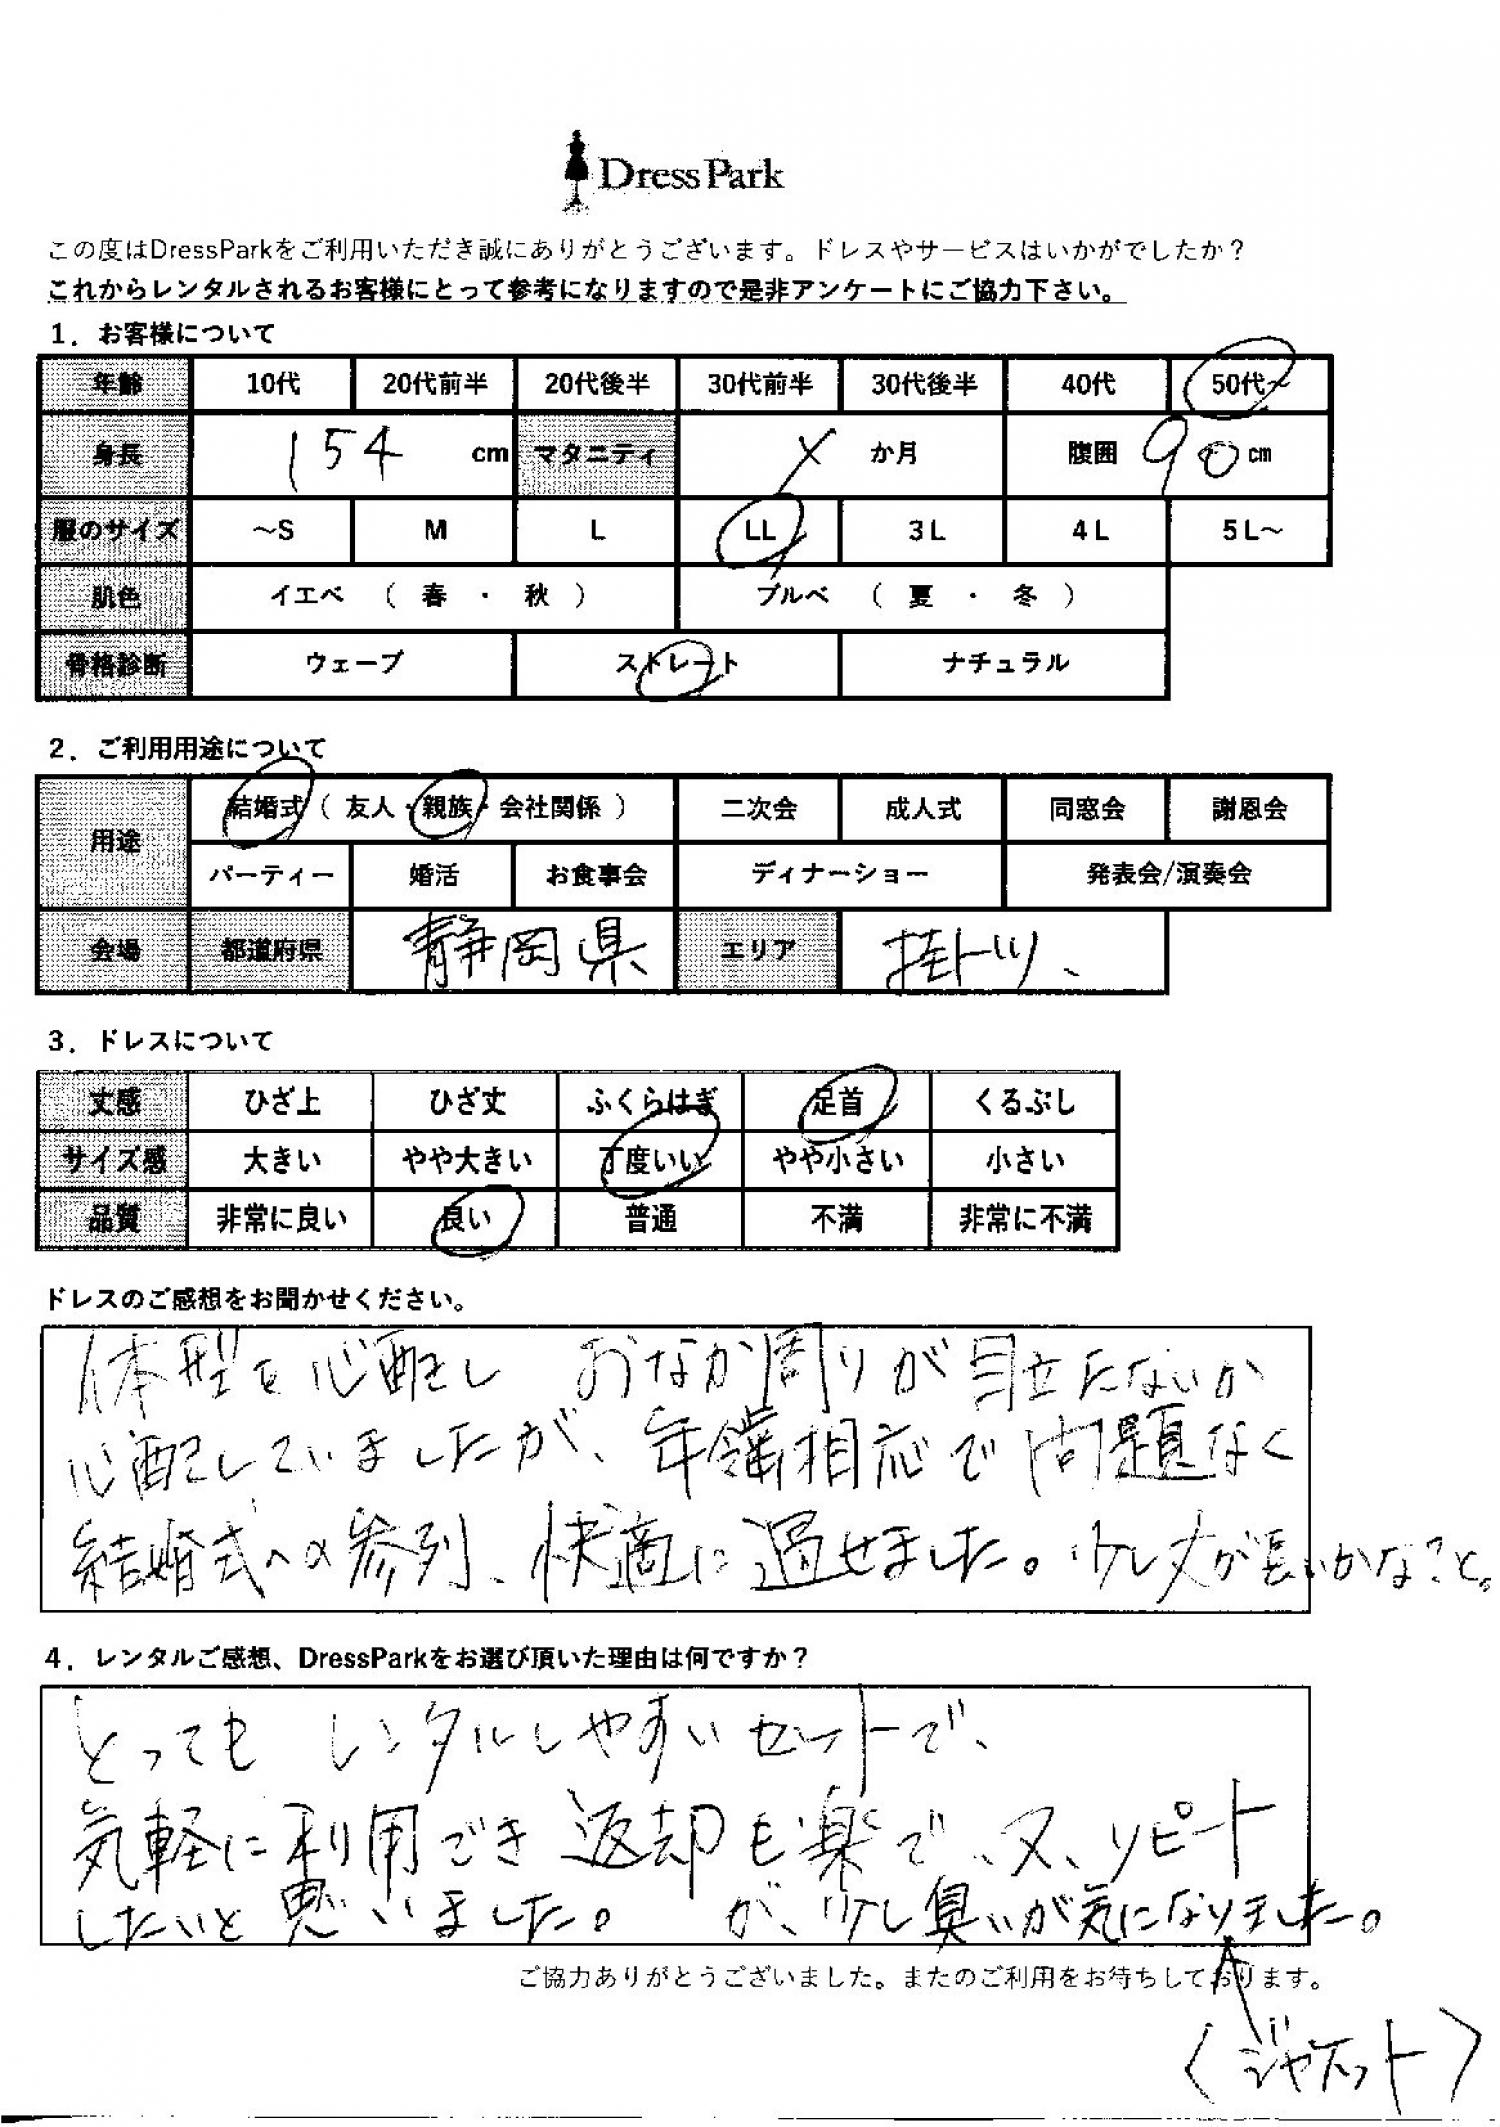 DressPark
この度はDressParkをご利用いただき誠にありがとうございます。ドレスやサービスはいかがでしたか？
これからレンタルされるお客様にとって参考になりますので是非アンケートにご協力下さい。
1．お客様について
年齢 10代 20代前半 20代後半 30代前半 30代後半 40代 50代～
身長 154 cm マタニティ × か月 腹囲 90 cm
服のサイズ ～S M L LL 3L 4L 5L～
肌色 イエベ （ 春 ・ 秋 ） ブルベ （ 夏 ・ 冬 ）
骨格診断 ウェーブ ストレート ナチュラル
2．ご利用用途について
用途 結婚式（ 友人・親族・会社関係 ） 二次会 成人式 同窓会 謝恩会
パーティー 婚活 お食事会 ディナーショー 発表会/演奏会
会場 都道府県 静岡県 エリア 掛川、
3．ドレスについて
丈感 ひざ上 ひざ丈 ふくらはぎ 足首 くるぶし
サイズ感 大きい やや大きい 丁度いい やや小さい 小さい
品質 非常に良い 良い 普通 不満 非常に不満
ドレスのご感想をお聞かせください。
体型を心配し おなか周りが目立たないか
心配していましたが、年齢相応で問題なく
結婚式への参列、快適に過せました。少し丈が長いかなこと。
4．レンタルご感想、DressParkをお選び頂いた理由は何ですか？
とっても レンタルしやすいセットで、
気軽に利用でき返却も楽で、又、リピート
したいと思いました。 が、少し臭いが気になりました。
ご協力ありがとうございました。またのご利用をお待ちしております。
〈ジャケット〉